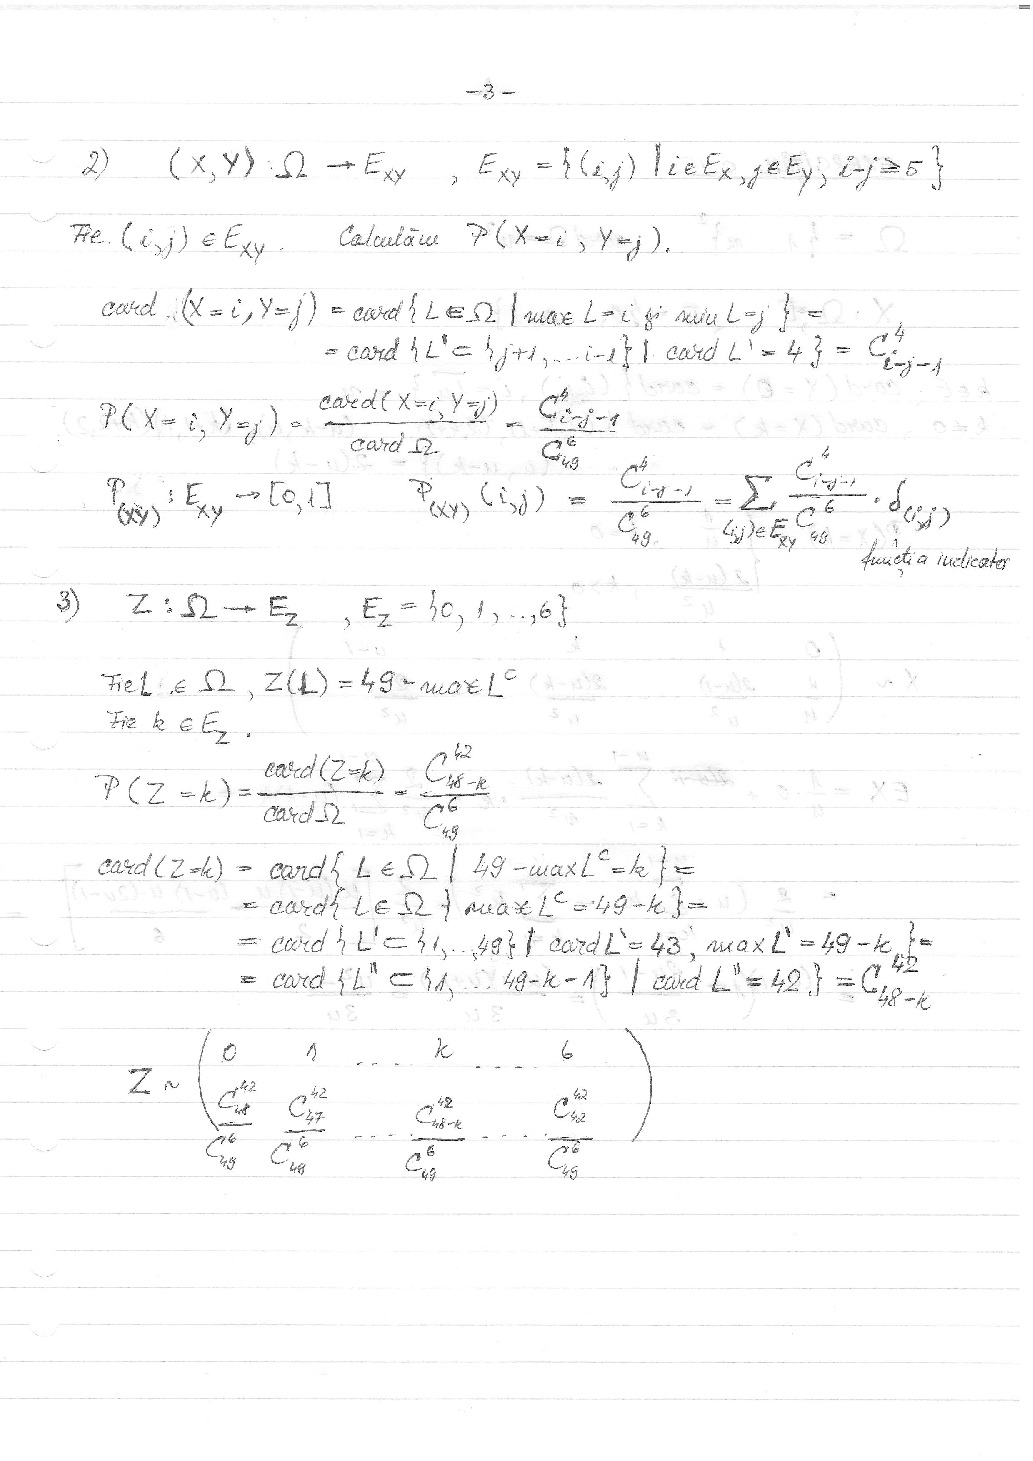 -3-
2) (X,Y) : Ω → E_XY , E_XY = {(i,j) | i∈E_X, j∈E_Y, i-j≥5}
Fie (i,j) ∈ E_XY. Calculăm P(X=i, Y=j).
card (X=i, Y=j) = card{L∈Ω | max L=i și min L=j} =
= card {L'⊂{j+1,...i-1} | card L'=4} = C^4_{i-j-1}
P(X=i, Y=j) = card(X=i, Y=j) / card Ω = C^4_{i-j-1} / C^6_49
P_(XY) : E_XY → [0,1] P_(XY) (i,j) = C^4_{i-j-1} / C^6_49 = Σ_{(i,j)∈E_XY} C^4_{i-j-1} / C^6_49 · δ_(i,j)
funcția indicator
3) Z : Ω → E_Z , E_Z = {0, 1, ..,6}
Fie L ∈ Ω, Z(L) = 49 - max L^c
Fie k ∈ E_Z.
P(Z=k) = card(Z=k) / card Ω = C^42_{48-k} / C^6_49
card(Z=k) = card{L∈Ω | 49-max L^c=k} =
= card{L∈Ω | max L^c=49-k} =
= card{L'⊂{1,..,49} | card L'=43, max L'=49-k} =
= card{L''⊂{1,... 49-k-1} | card L''=42} = C^42_{48-k}
0 1 .... k .... 6
Z ~ ( C^42_48 / C^6_49 C^42_47 / C^6_49 .... C^42_{48-k} / C^6_49 .... C^42_42 / C^6_49 )